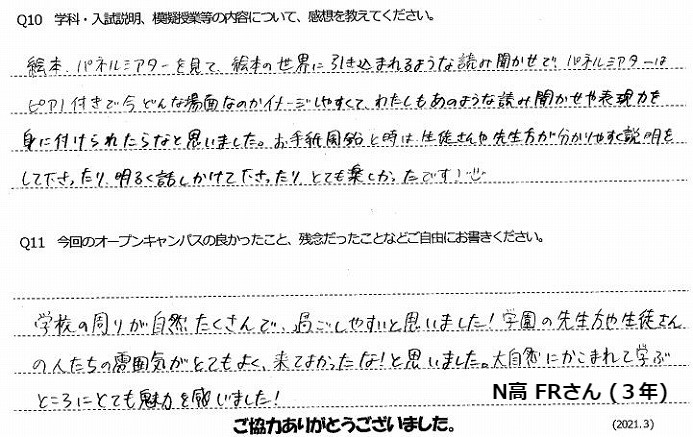 Q10　学科・入試説明、模擬授業等の内容について、感想を教えてください。
絵本、パネルシアターを見て、絵本の世界に引き込まれるような読み聞かせで、パネルシアターは
ピアノ付きで今どんな場面なのかイメージしやすくて、わたしもあのような読み聞かせや表現力を
身に付けられたらなと思いました。お手紙開始と時は、生徒さんや先生方が分かりやすく説明を
して下さったり、明るく話しかけて下さったり、とても楽しかったです!
Q11　今回のオープンキャンパスの良かったこと、残念だったことなどご自由にお書きください。
学校の周りが自然たくさんで、過ごしやすいと思いました!学園の先生方や生徒さん
の人たちの雰囲気がとてもよく、来てよかったな!と思いました。大自然にかこまれて学ぶ
ところにとても魅力を感いました!
N高 FRさん (３年)
ご協力ありがとうございました。
(2021.3)